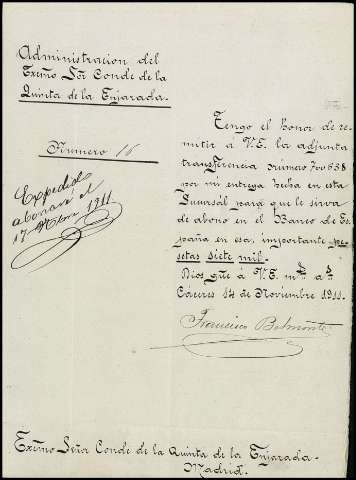 Administracion del
Exmo Sor Conde de la
Quinta de la Enjarada.
Numero 16
Expedido
abonaré el
17 Nbre 1911
Tengo el honor de re=
mitir á V.E. la adjunta
transferencia número 700638
por mi entrega hecha en esta
Sucursál para que le sirva
de abono en el Banco de Es=
paña en esa, importante pe=
setas siete mil.
Dios gue á V.E. ms as
Cáceres 14 de Noviembre 1911.
Francisco Belmonte
Exmo Señor Conde de la Quinta de la Enjarada.
Madrid.